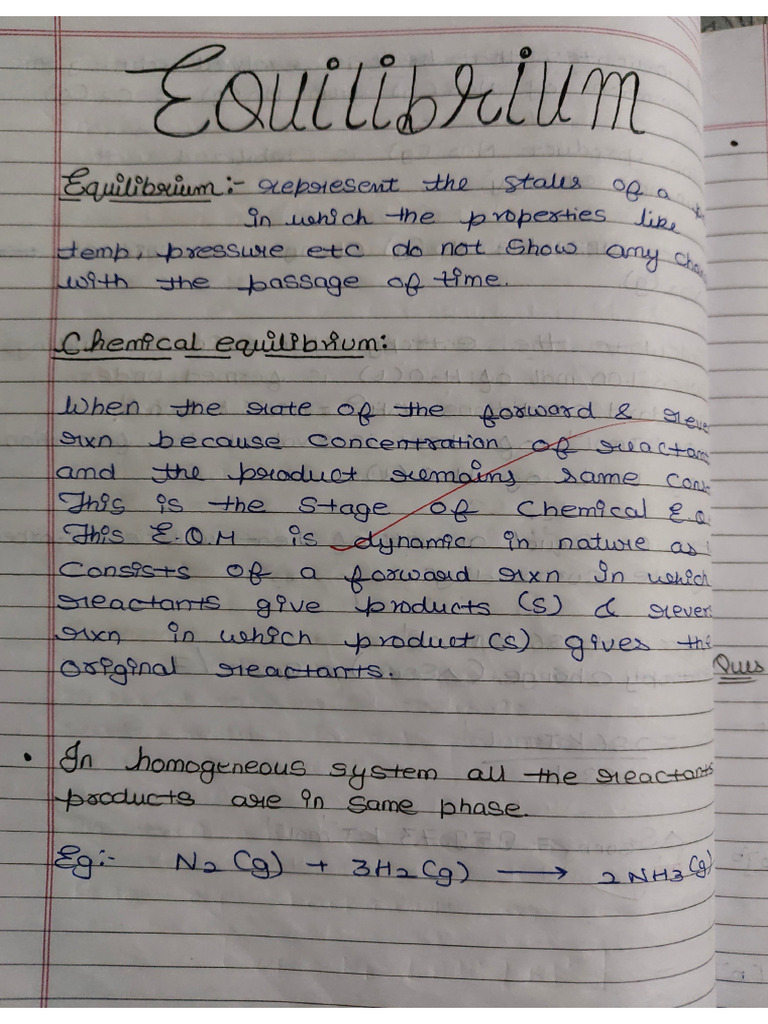 Equilibrium
Equilibrium:- represent the states of a
in which the properties like
temp, pressure etc do not show any
with the passage of time.
Chemical equilibrium:
When the rate of the forward &
rxn because concentration of
and the product remains same
This is the stage of Chemical
This E.Q.M is dynamic in nature as
consists of a forward rxn in which
reactants give products (s) &
rxn in which product (s) gives the
original reactants.
• In homogeneous system all the reactants
products are in same phase.
Eg:- N2 (g) + 3H2 (g) ⟶ 2NH3 (g)
Ques